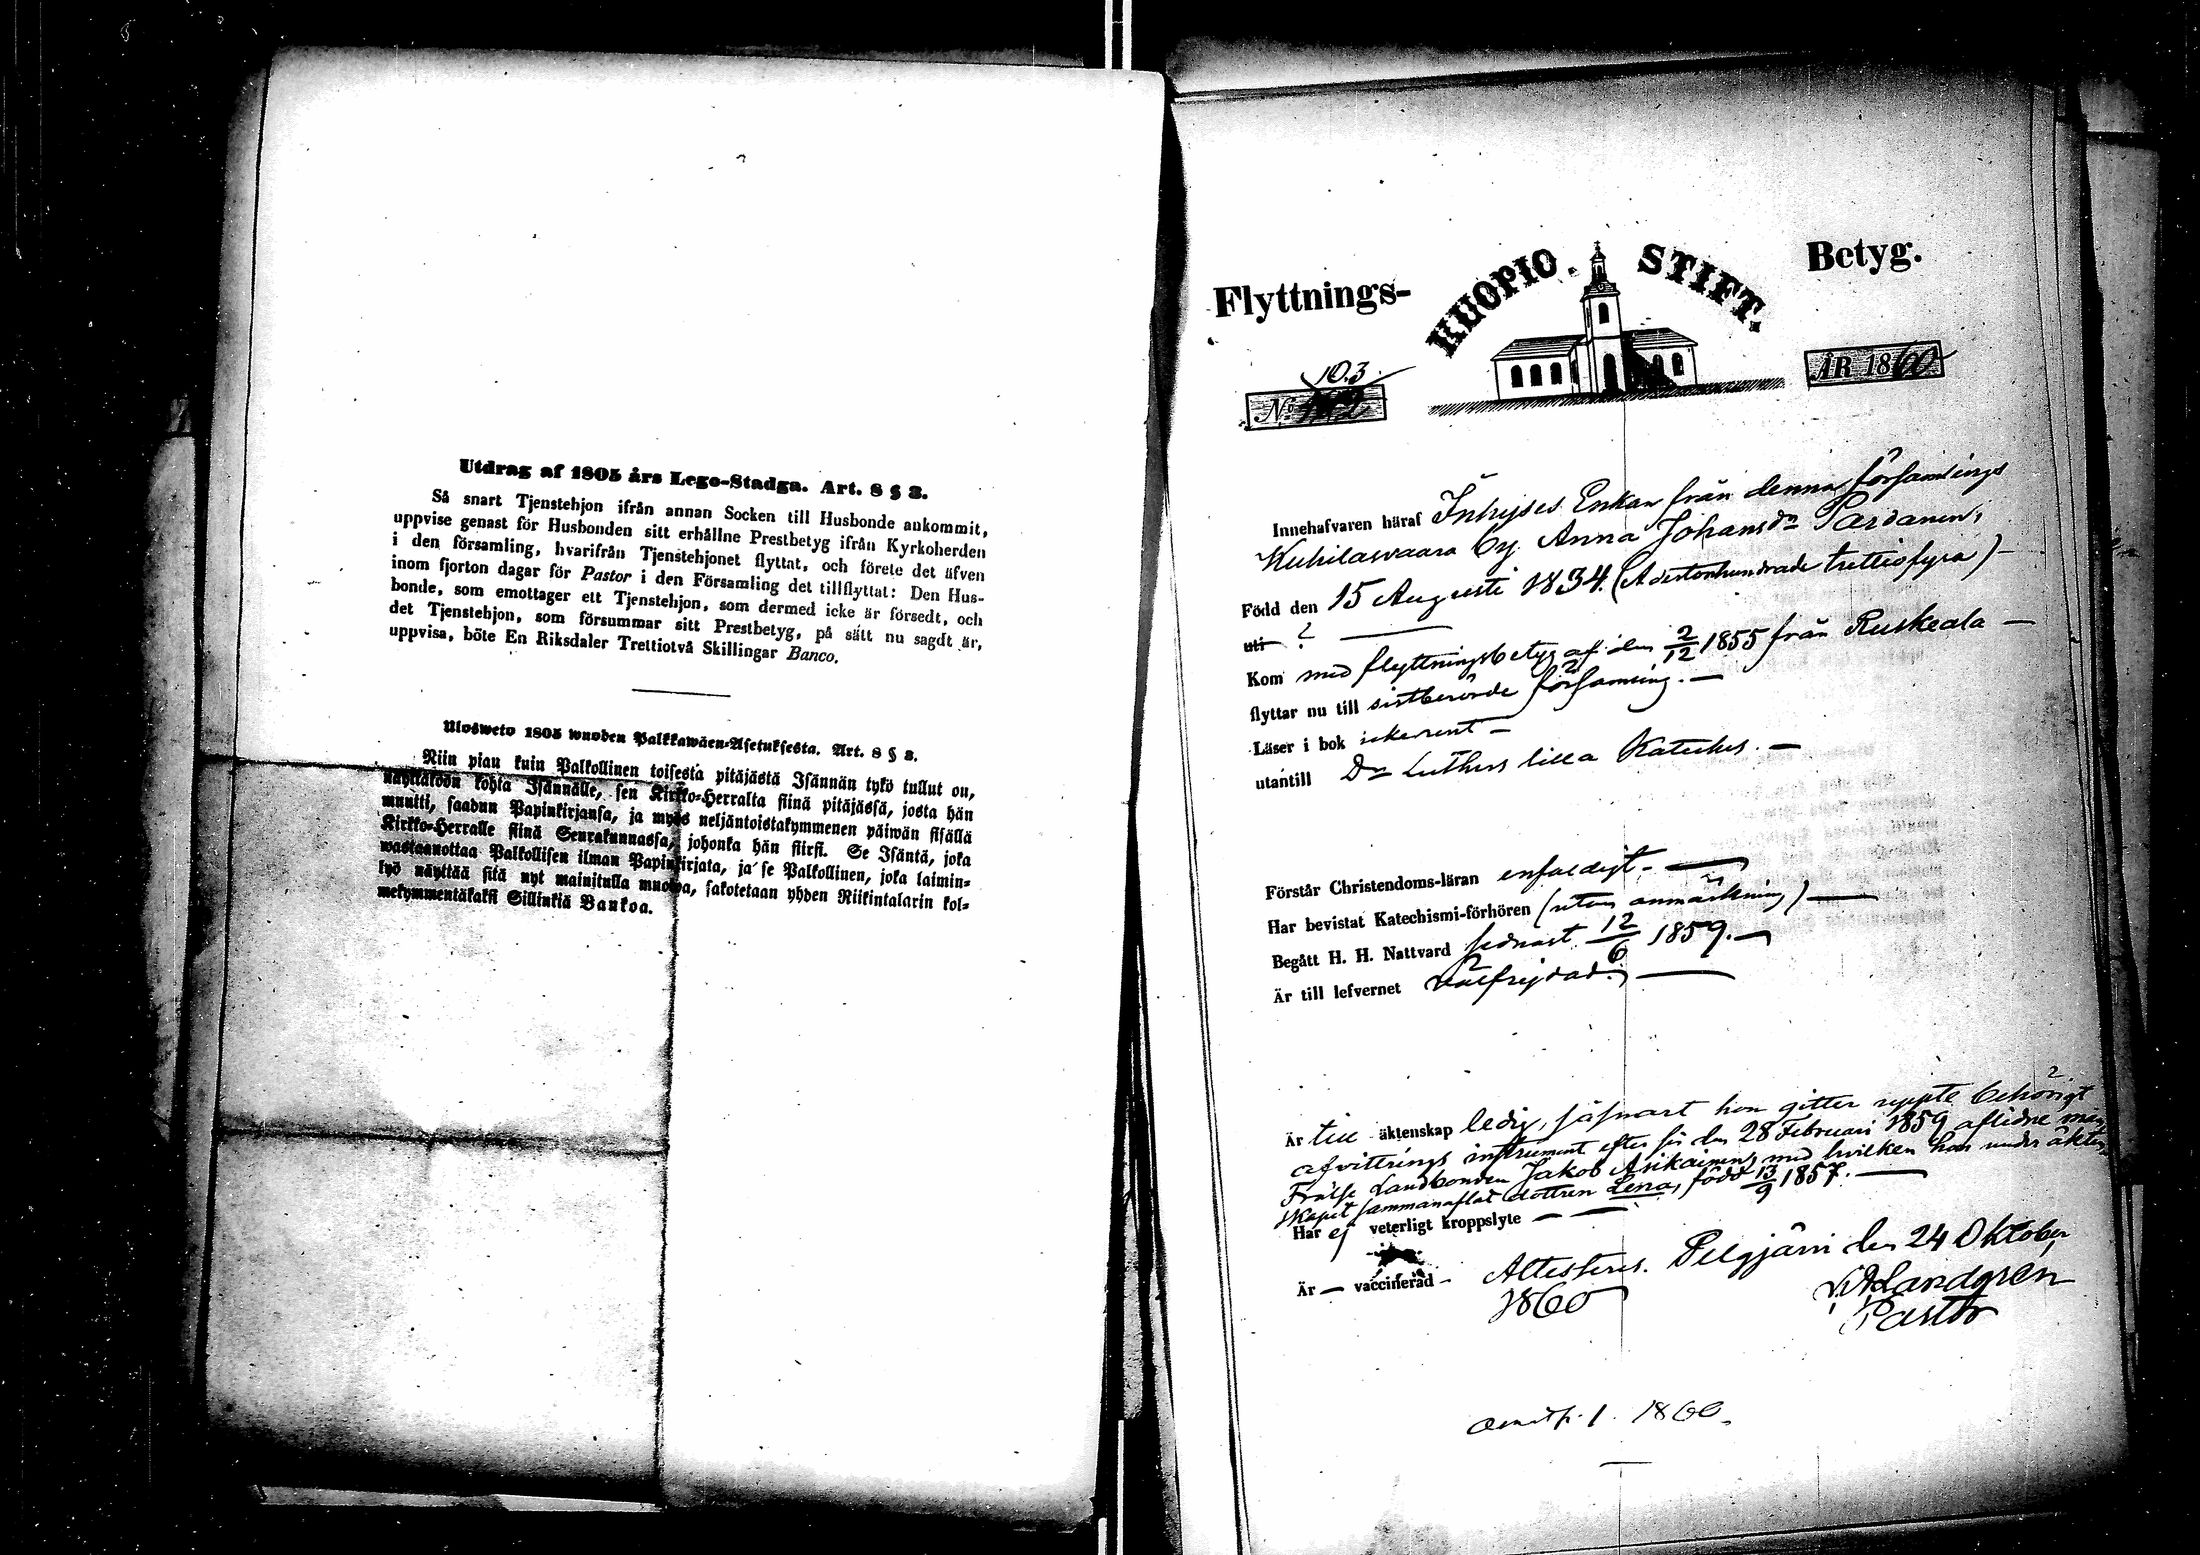 Utdrag af 1805 års Lego-Stadga. Art. 8 § 3.
Så snart Tjenstehjon ifrån annan Socken till Husbonde ankommit,
uppvise genast för Husbonden sitt erhållne Prestbetyg ifrån Kyrkoherden
i den församling, hvarifrån Tjenstehjonet flyttat, och förete det äfven
inom fjorton dagar för Pastor i den Församling det tillflyttat: Den Hus-
bonde, som emottager ett Tjenstehjon, som dermed icke är försedt, och
det Tjenstehjon, som försummar sitt Prestbetyg, på sätt nu sagdt är,
uppvisa, böte En Riksdaler Trettiotvå Skillingar Banco.
Ulosweto 1805 wuoden Palkkawäen-Asetuksesta. Art. 8 § 3.
Niin pian kuin Palkollinen toisesta pitäjästä Isännän tykö tullut on,
näyttäköön kohta Isännälle, sen Kirkko-Herralta siinä pitäjässä, josta hän
muutti, saadun Papinkirjansa, ja myös neljäntoistakymmenen päiwän sisällä
Kirkko-Herralle siinä Seurakunnassa, johonka hän siirsi. Se Isäntä, joka
wastaanottaa Palkollisen ilman Papinkirjata, ja se Palkollinen, joka laimin-
lyö näyttää sitä nyt mainitulla muotoa, sakotetaan yhden Riikintalarin kol-
mekymmentäkaksi Sillinkiä Bankoa.
Flyttnings- KUOPIO STIFT. Betyg.
10.3.
No ÅR 1860
Innehafvaren häraf Inhyses Enkan från denna församlings
Kuhilasvaara by Anna Johansdr Pardanen,
Född den 15 Augusti 1834. (Adertonhundrade trettiofyra)—
uti ? —
Kom med flyttningsbetyg af den 2/12 1855 från Ruskeala —
flyttar nu till sistberörde församling. —
Läser i bok ickerent —
utantill Dr Luthers lilla Kateches. —
Förstår Christendoms-läran enfaldigt. —
Har bevistat Katechismi-förhören (utan anmärkning) —
Begått H. H. Nattvard sednast 12/6 1859. —
Är till lefvernet välfrejdad. —
Är till äktenskap ledig, såsnart hon gitter uppte behörigt
afvittrings instrument efter sin den 28 Februari 1859 aflidne man,
Frälse Landbonden Jakob Asikainen, med hvilken hon under äkten-
skapet sammanaflat dottren Lena, född 13/9 1857. —
Har ej veterligt kroppslyte — —
Är — vaccinerad — Attesteras. Pelgjärvi den 24 Oktober
1860
Landgren
Pastor
1. 1860.